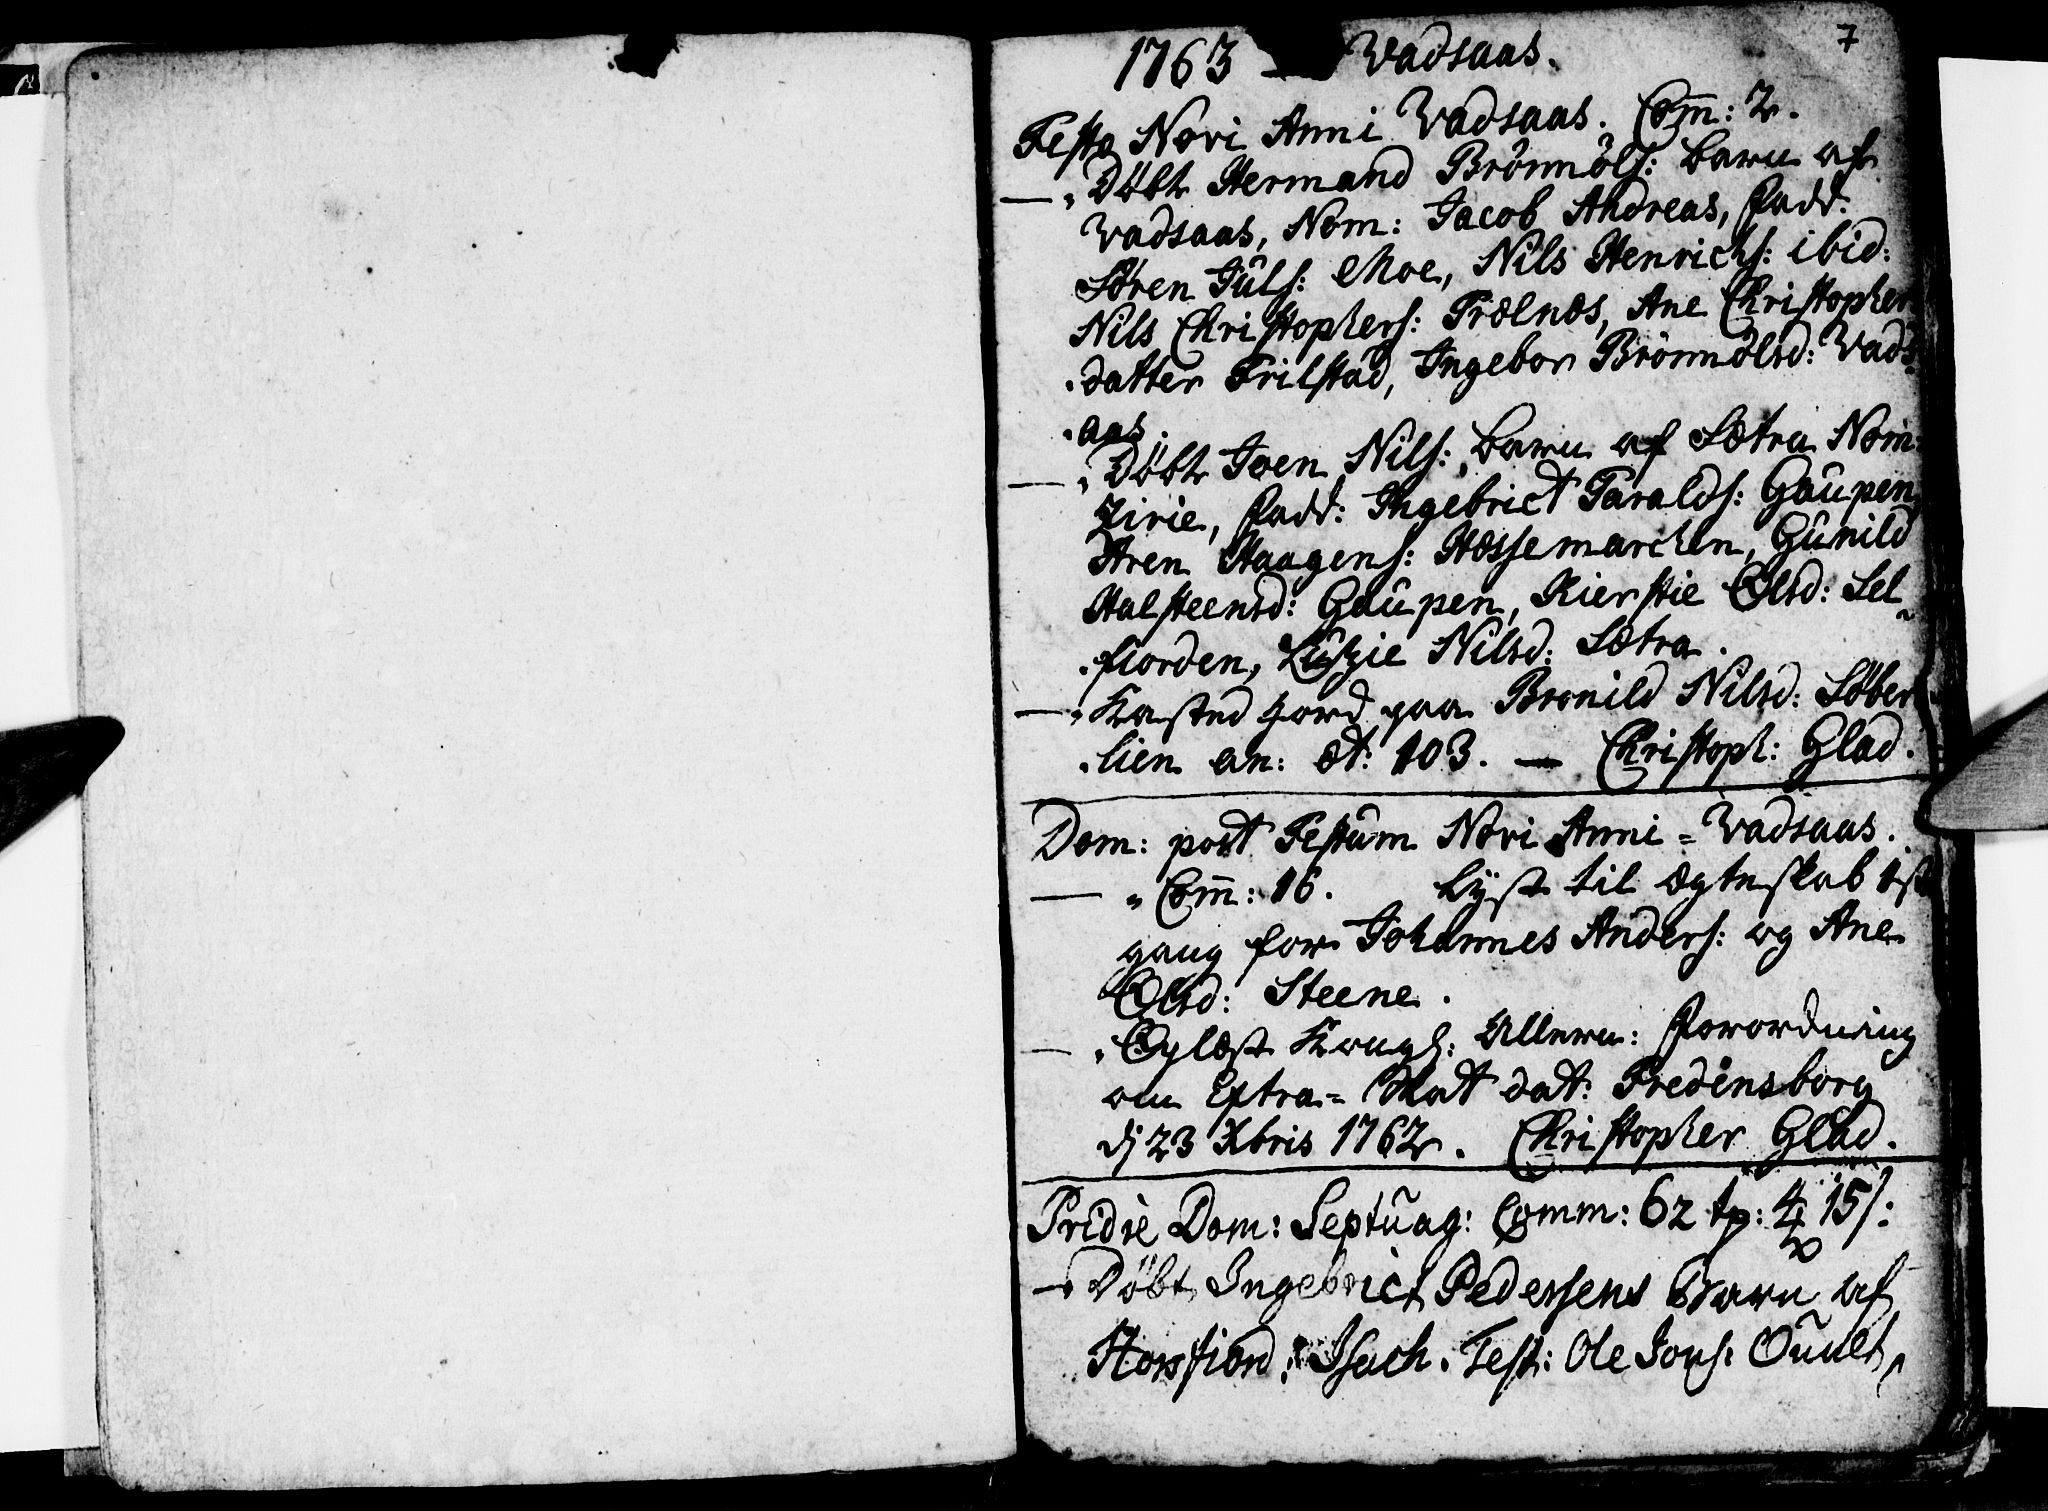 7
1763 — Vadsaas.
Festo Novi Anni Vadsaas. Com̄: 2.
— „ Döbt Hermand Brönnöls: barn af
Vadsaas, Nom: Jacob Andreas, Fadd:
Sören Juls: Moe, Nils Henrichs: ibid:
Nils Christophers: Trælnæs, Ane Christopher
datter Trilstad, Ingebor Brönnölsd: Vads
aas.
— „ Döbt Joen Nils: barn af Sætra Nom:
Zirie, Fadd: Ingebrict Taralds: Gaupen,
Aren Haagens: Hæssemarchen, Gunild
Halsteensd: Gaupen, Kierstie Olsd: Sel-
fiorden, Luzie Nilsd: Sætra.
— „ Kasted Jord paa Bronild Nilsd: Söber
lien an: æt: 103. — Christoph: Glad.
Dom: post Festum Novi Anni = Vadsaas.
— „ Com̄: 16. Lyst til Ægteskab 1st
gang for Johannes Anders: og Ane
Olsd: Steene.
— „ Oplæst Kongl: Allern: Forordning
om Extra= Skat dat: Fredensborg
dj 23 Xbris 1762. Christopher Glad.
Pridie Dom: Septuag: Comm: 62 15/:
— Döbt Ingebrict Pedersens Barn af
Horsfiord, Isach. Test: Ole Jons: